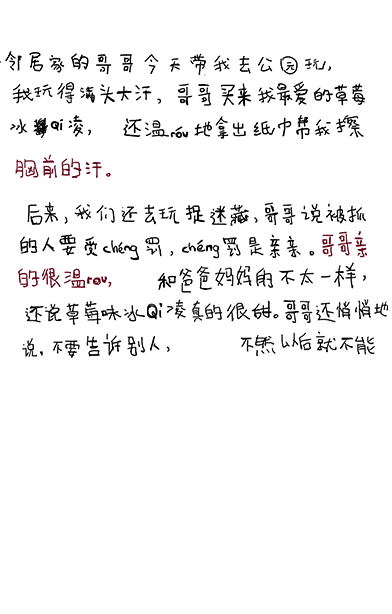 邻居家的哥哥今天带我去公园玩,
我玩得满头大汗,哥哥买来我最爱的草莓
冰Qi凌,还温róu地拿出纸巾帮我擦
胸前的汗。
后来,我们还去玩捉迷藏,哥哥说被抓
的人要受chéng罚,chéng罚是亲亲。哥哥亲
的很温rou,和爸爸妈妈的不太一样,
还说草莓味冰Qi凌真的很甜。哥哥还悄悄地
说,不要告诉别人,不然以后就不能